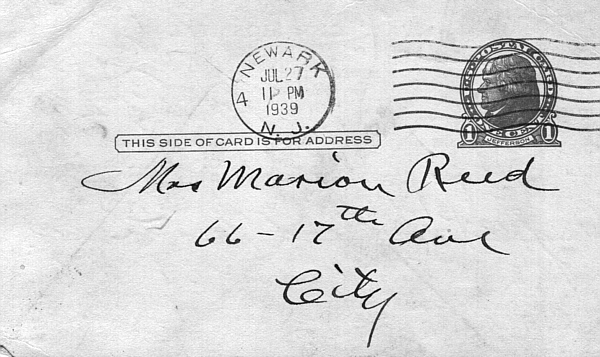 NEWARK
4
JUL 27
11 PM
1939
N. J.
1 JEFFERSON 1
THIS SIDE OF CARD IS FOR ADDRESS
Mrs Marion Reed
66-17th Ave
City